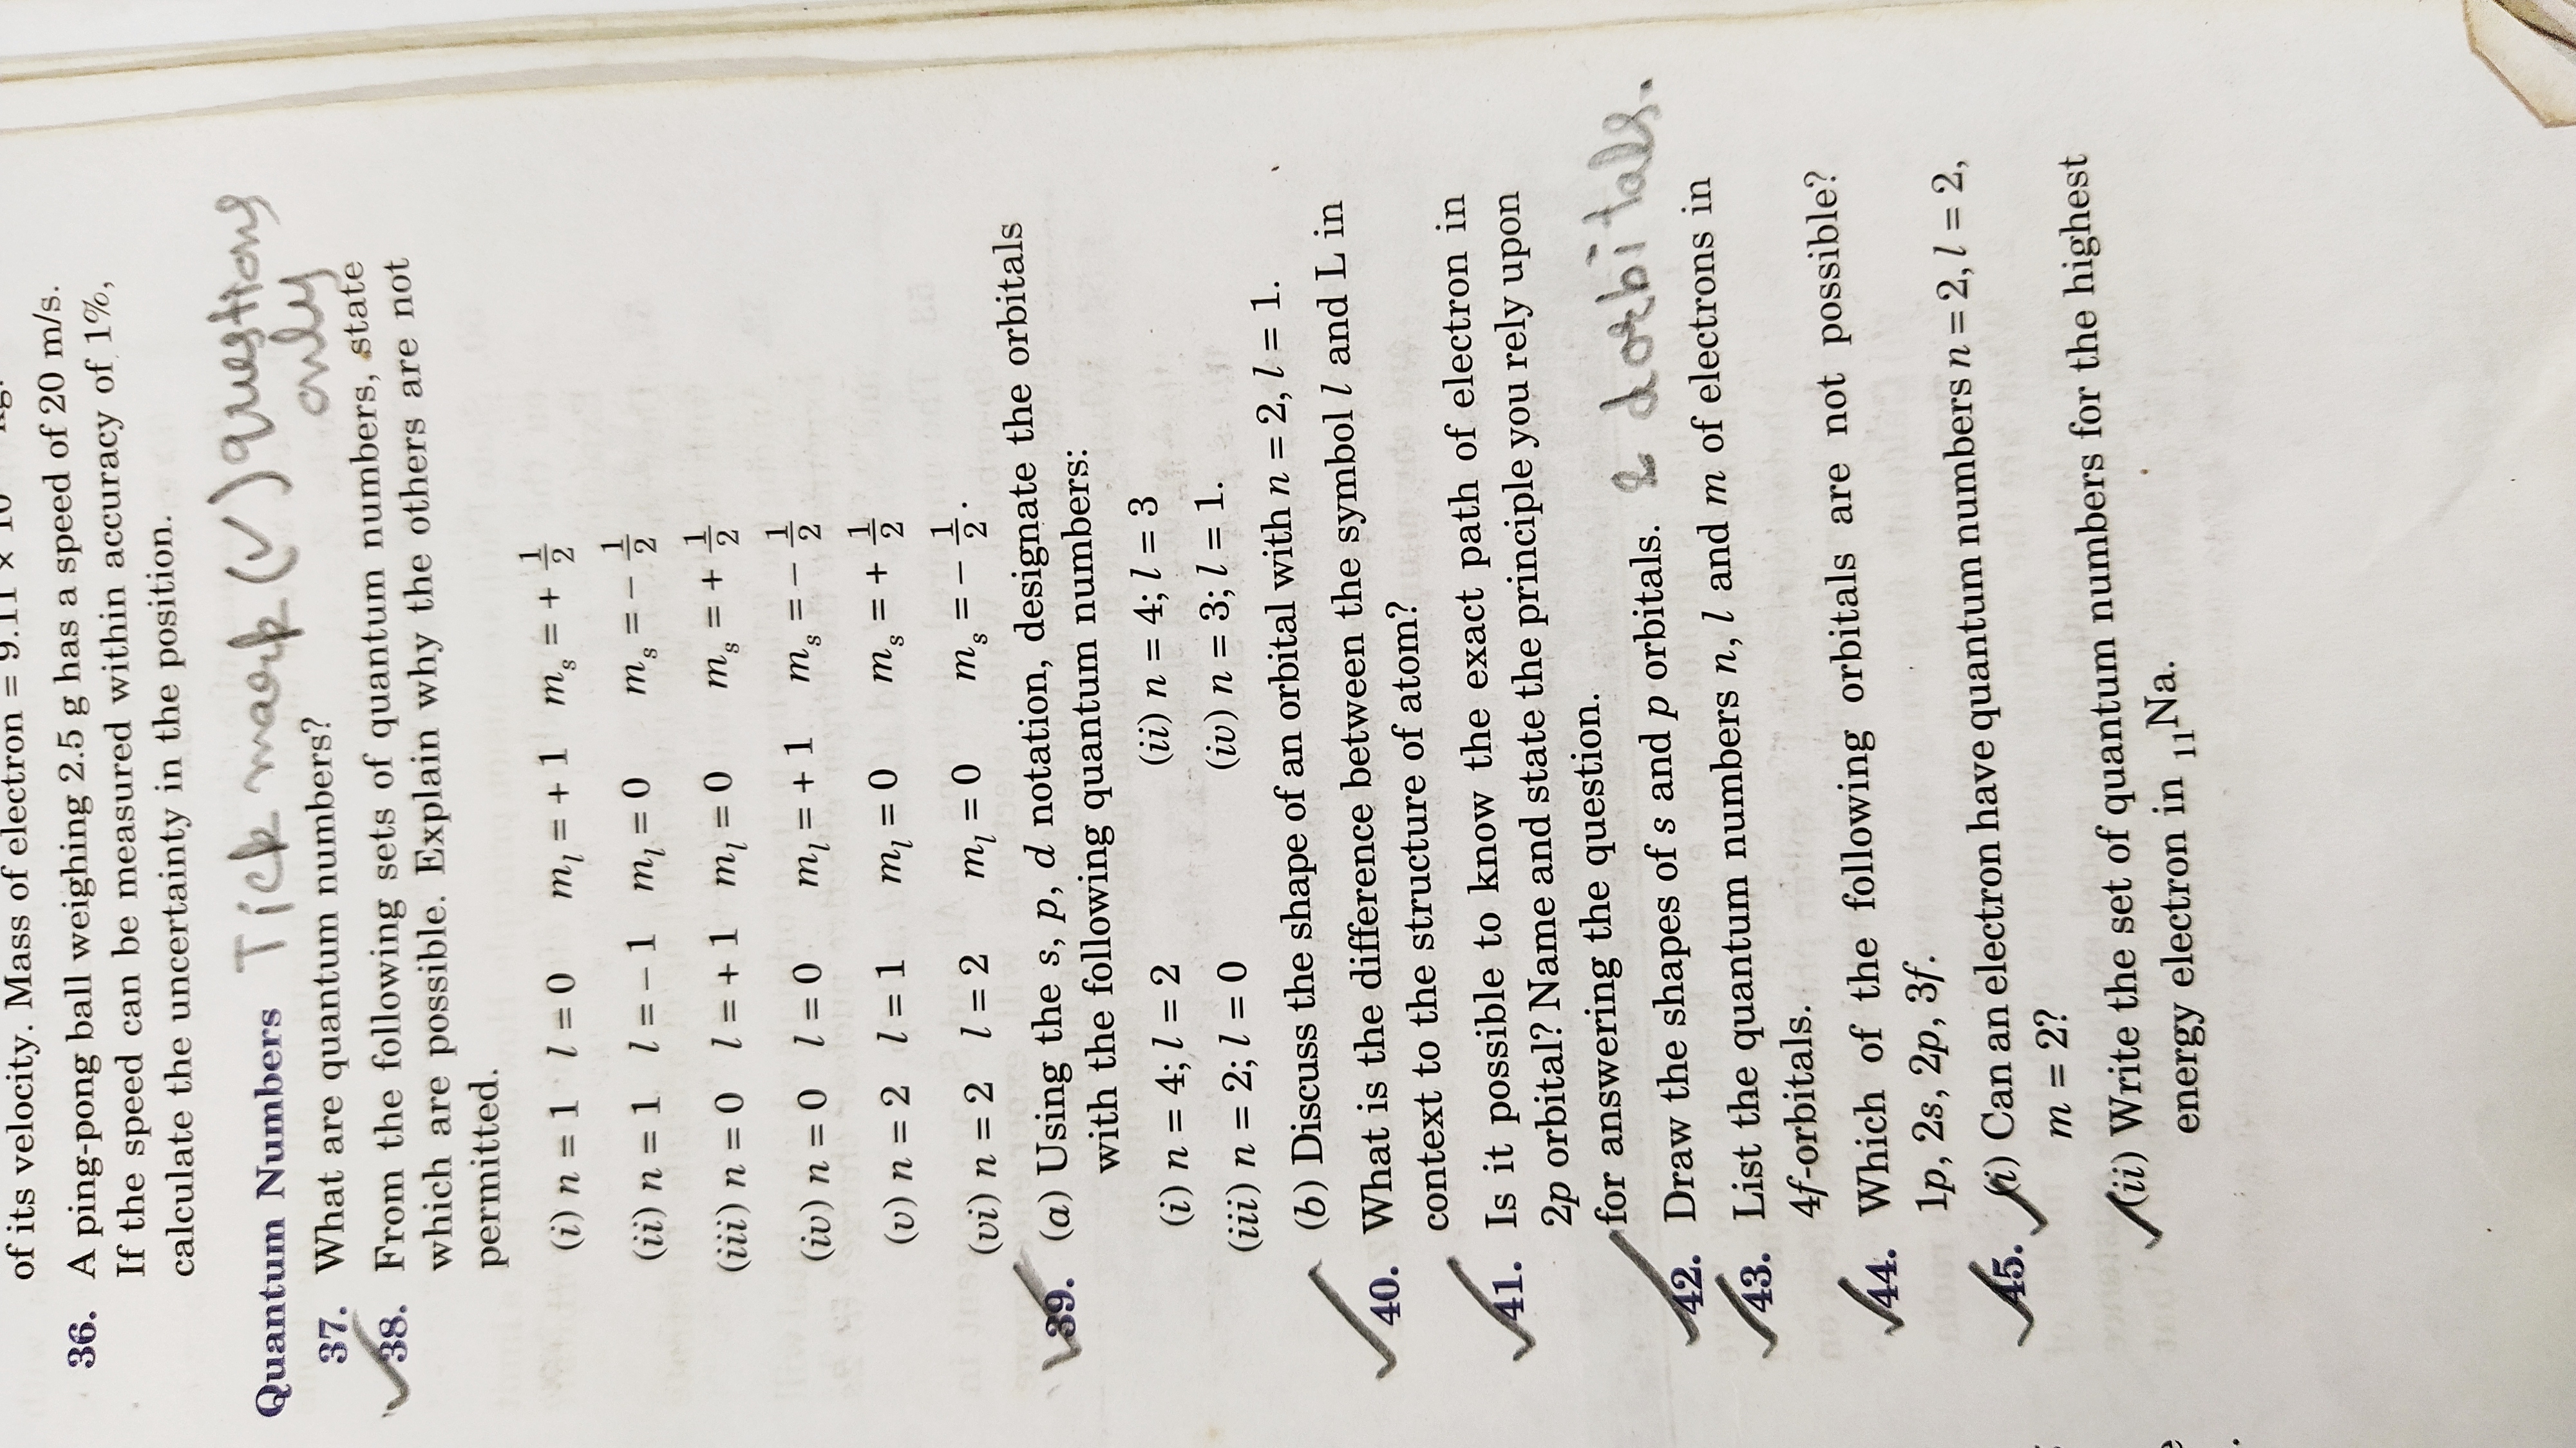 of its velocity. Mass of electron = 9.11 × 10
36. A ping-pong ball weighing 2.5 g has a speed of 20 m/s.
If the speed can be measured within accuracy of 1%,
calculate the uncertainty in the position.
Quantum Numbers Tick mark (✓) questions only
37. What are quantum numbers?
✓38. From the following sets of quantum numbers, state
which are possible. Explain why the others are not
permitted.
(i) n = 1 l = 0 mₗ = + 1 mₛ = + 1/2
(ii) n = 1 l = – 1 mₗ = 0 mₛ = – 1/2
(iii) n = 0 l = + 1 mₗ = 0 mₛ = + 1/2
(iv) n = 0 l = 0 mₗ = + 1 mₛ = – 1/2
(v) n = 2 l = 1 mₗ = 0 mₛ = + 1/2
(vi) n = 2 l = 2 mₗ = 0 mₛ = – 1/2.
✓39. (a) Using the s, p, d notation, designate the orbitals
with the following quantum numbers:
(i) n = 4; l = 2 (ii) n = 4; l = 3
(iii) n = 2; l = 0 (iv) n = 3; l = 1.
(b) Discuss the shape of an orbital with n = 2, l = 1.
✓40. What is the difference between the symbol l and L in
context to the structure of atom?
✓41. Is it possible to know the exact path of electron in
2p orbital? Name and state the principle you rely upon
for answering the question.
✓42. Draw the shapes of s and p orbitals. & d orbitals.
✓43. List the quantum numbers n, l and m of electrons in
4f-orbitals.
✓44. Which of the following orbitals are not possible?
1p, 2s, 2p, 3f.
✓45. ✓(i) Can an electron have quantum numbers n = 2, l = 2,
m = 2?
✓(ii) Write the set of quantum numbers for the highest
energy electron in ₁₁Na.